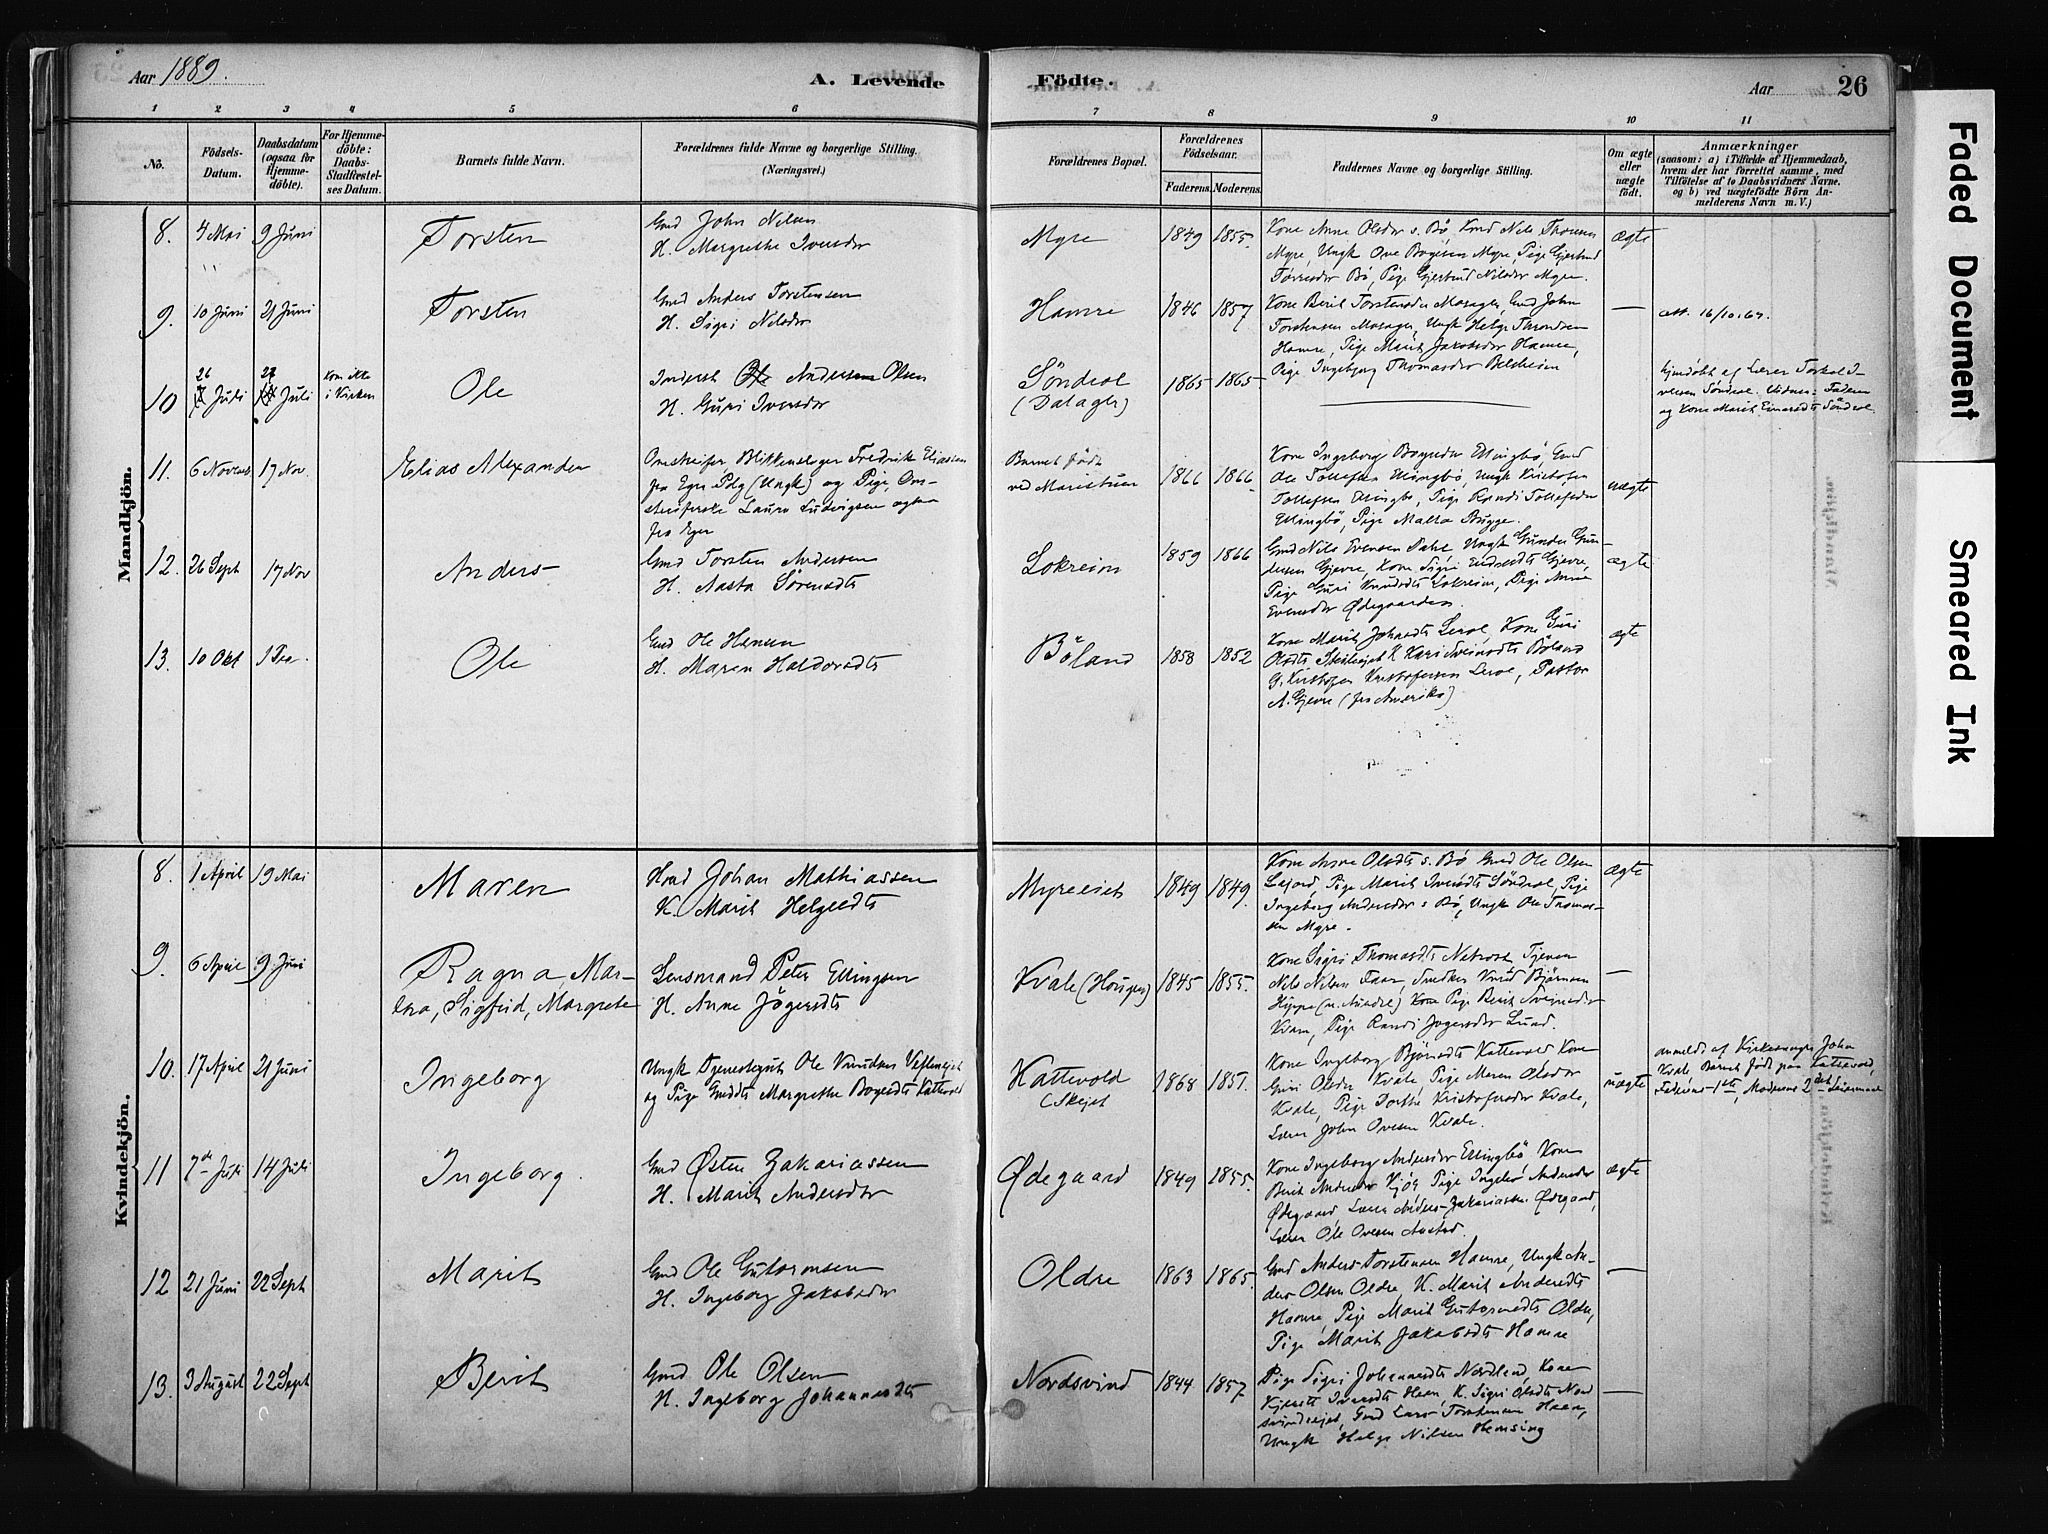 Aar 1889.
A. Levende
Födte.
Aar
26
1 2 3 4 5 6 7 8 9 10 11
No.
Födsels-
Datum.
Daabsdatum
(ogsaa for
Hjemme-
döbte).
For Hjemme-
döbte:
Daabs-
Stadfæstel-
ses Datum.
Barnets fulde Navn.
Forældrenes fulde Navne og borgerlige Stilling.
(Næringsvei.)
Forældrenes Bopæl.
Forældrenes
Födselsaar.
Faderens. Moderens.
Faddernes Navne og borgerlige Stilling.
Om ægte
eller
uægte
födt.
Anmærkninger
(saasom: a) i Tilfælde af Hjemmedaab,
hvem der har forrettet samme, med
Tilföielse af to Daabsvidners Navne.
og b) ved uægtefödte Börn An-
melderens Navn m. V.)
Mandkjön.
8. 4 Mai 9 Juni
Torsten
Gmd John Nilsen
H. Margrethe Iversdtr
Myre
1849 1855.
Kone Anne Olsdtr s. Bø
Myre, Ungk Ove Boyesen Myre, Pige Gjertrud
Bø, Pige Gjertrud Nilsdtr Myre
Ægte
9. 10 Juni 21 Juni
Torsten
Gmd Anders Torstensen
H. Sigri Nilsdtr
Hamre
1846 1857
Kone Berit Torstensdtr Mosager, Gmd John
Torstensen Mosager, Ungk Helge Throndsen
Hamre, Pige Marit Jakobsdtr Hamre,
Pige Ingebjorg Thomasdtr Belsheim
—
att. 16/10.64.
10 26 Juli 27 Juli
Kom ikke
i Kirken
Ole
Inderst Andersen Olsen
H. Guri Iversdtr
Sönderol
(Dalager)
1865 1865
hjemdöbt af Lærer Torkel I-
versen Sönderol. Vidner: Faderen
og Kone Marit Einarsdtr Sönderol.
11. 6 Novemb 17 Nov.
Elias Alexander
Omstreifer Blikkenslager Fredrik Eliassen
fra Eger Pdg (Ungk) og Pige, Om-
streiferske Laura Ludvigsen ogsaa
fra Eger
Barnet født
ved Maristuen
1866 1866
Kone Ingeborg Boyesdtr Ellingbö, Gmd
Ole Tollefsen Ellingbö, Ungk Kristofer
Tollefsen Ellingbö, Pige Randi Tollefsdtr
Ellingbö, Pige Malta Bugge.
uægte
12. 26 Sept 17 Nov
Anders
Gmd Torsten Andersen
H. Aasta Sörensdtr
Lokreim
1859 1866
Gmd Nils Evensen Dahl, Ungk Gunder Gun-
dersen Gjevre, Kone Sigri Gjevre,
Pige Guri Knudsdtr Lokreim, Pige Anne
Evensdtr Ødegaarden.
ægte
13. 10 Okt 1 Dec.
Ole
Gmd Ole Hansen
H. Maren Haldorsdtr
Böland
1858 1852
Kone Marit Johnsdtr Lerol, Kone Guri
Olsdtr K Kari Sveinsdtr Böland
G. Kristofer Kristofersen Lerol, Pastor
A. Gjevre (fra Amerika)
ægte
Kvindekjön.
8. 1 April 19 Mai
Maren
Hmd Johan Mathiassen
K. Marit Helgesdtr
Myreeiet
1849 1849.
Kone Anne Olsdtr s. Bø Gmd Ole Olsen
Pige Marit Iversdtr Sönderol, Pige
Ingeborg Andersdtr s Bø, Ungk Ole Thomas-
sen Myre.
Ægte
9. 6 April 9 Juni
Ragna, Mar-
tha, Sigfrid, Margrete
Lensmand Peter Ellingsen
H. Anne Jögersdtr
Kvale (Haugen)
1845 1855.
Kone Sigri Thomasdtr Tjener
Nils Nilsen Smeden Knud Björnsen
Kone Pige Berit Sveinsdtr
Kvam, Pige Randi Jogersdtr Lund.
—
10. 17 April 21 Juni
Ingeborg
Ungk Tjenestegut Ole Knudsen
og Pige Gmddtr Margrethe Boyesdtr Kattevold
Kattevold
(Skejet
1868 1851.
Kone Ingeborg Björnsdtr Kattevold Kone
Guri Olsdtr Kvale, Pige Maren Olsdtr
Kvale, Pige Dorthe Kristofersdtr Kvale,
Lærer John Ovesen Kvale.
uægte
anmeldt af Kirkesanger John
Kvale Barnet født paa Kattevold,
Faderens 1ste, Moderens 2det Leiermaal
11 7de Juli 14 Juli
Ingeborg.
Gmd Østen Zakariassen
H. Marit Andersdtr
Ødegaard
1849 1855.
Kone Ingeborg Andersdtr Ellingbö Kone
Berit Andersdtr Kjös Pige Ingebor Andersdtr
Ødegaard Lærer Anders Zakariassen Ødegaard,
Lærer Ole Ovesen
ægte
12 21 Juni 22 Sept
Marit
Gmd Ole Guttormsen
H. Ingeborg Jakobsdtr
Oldre
1863 1865.
Gmd Anders Torstensen Hamre, Ungk An-
ders Olsen Oldre, K. Marit Andersdtr
Hamre, Pige Marit Guttormsdtr Oldre,
Pige Marit Jakobsdtr Hamre
—
13. 3 August 22 Sept
Berit
Gmd Ole Olsen
H. Ingeborg Johannesdtr
Nordsvind
1844 1857.
Pige Sigri Johannesdtr Nordland, Kone
Iversdtr Heen, K. Sigri Olsdtr Nord
svindeiet, Gmd Lars Torstensen Heen,
Ungk Helge Nilsen Hemsing
—
Faded Document
Smeared Ink